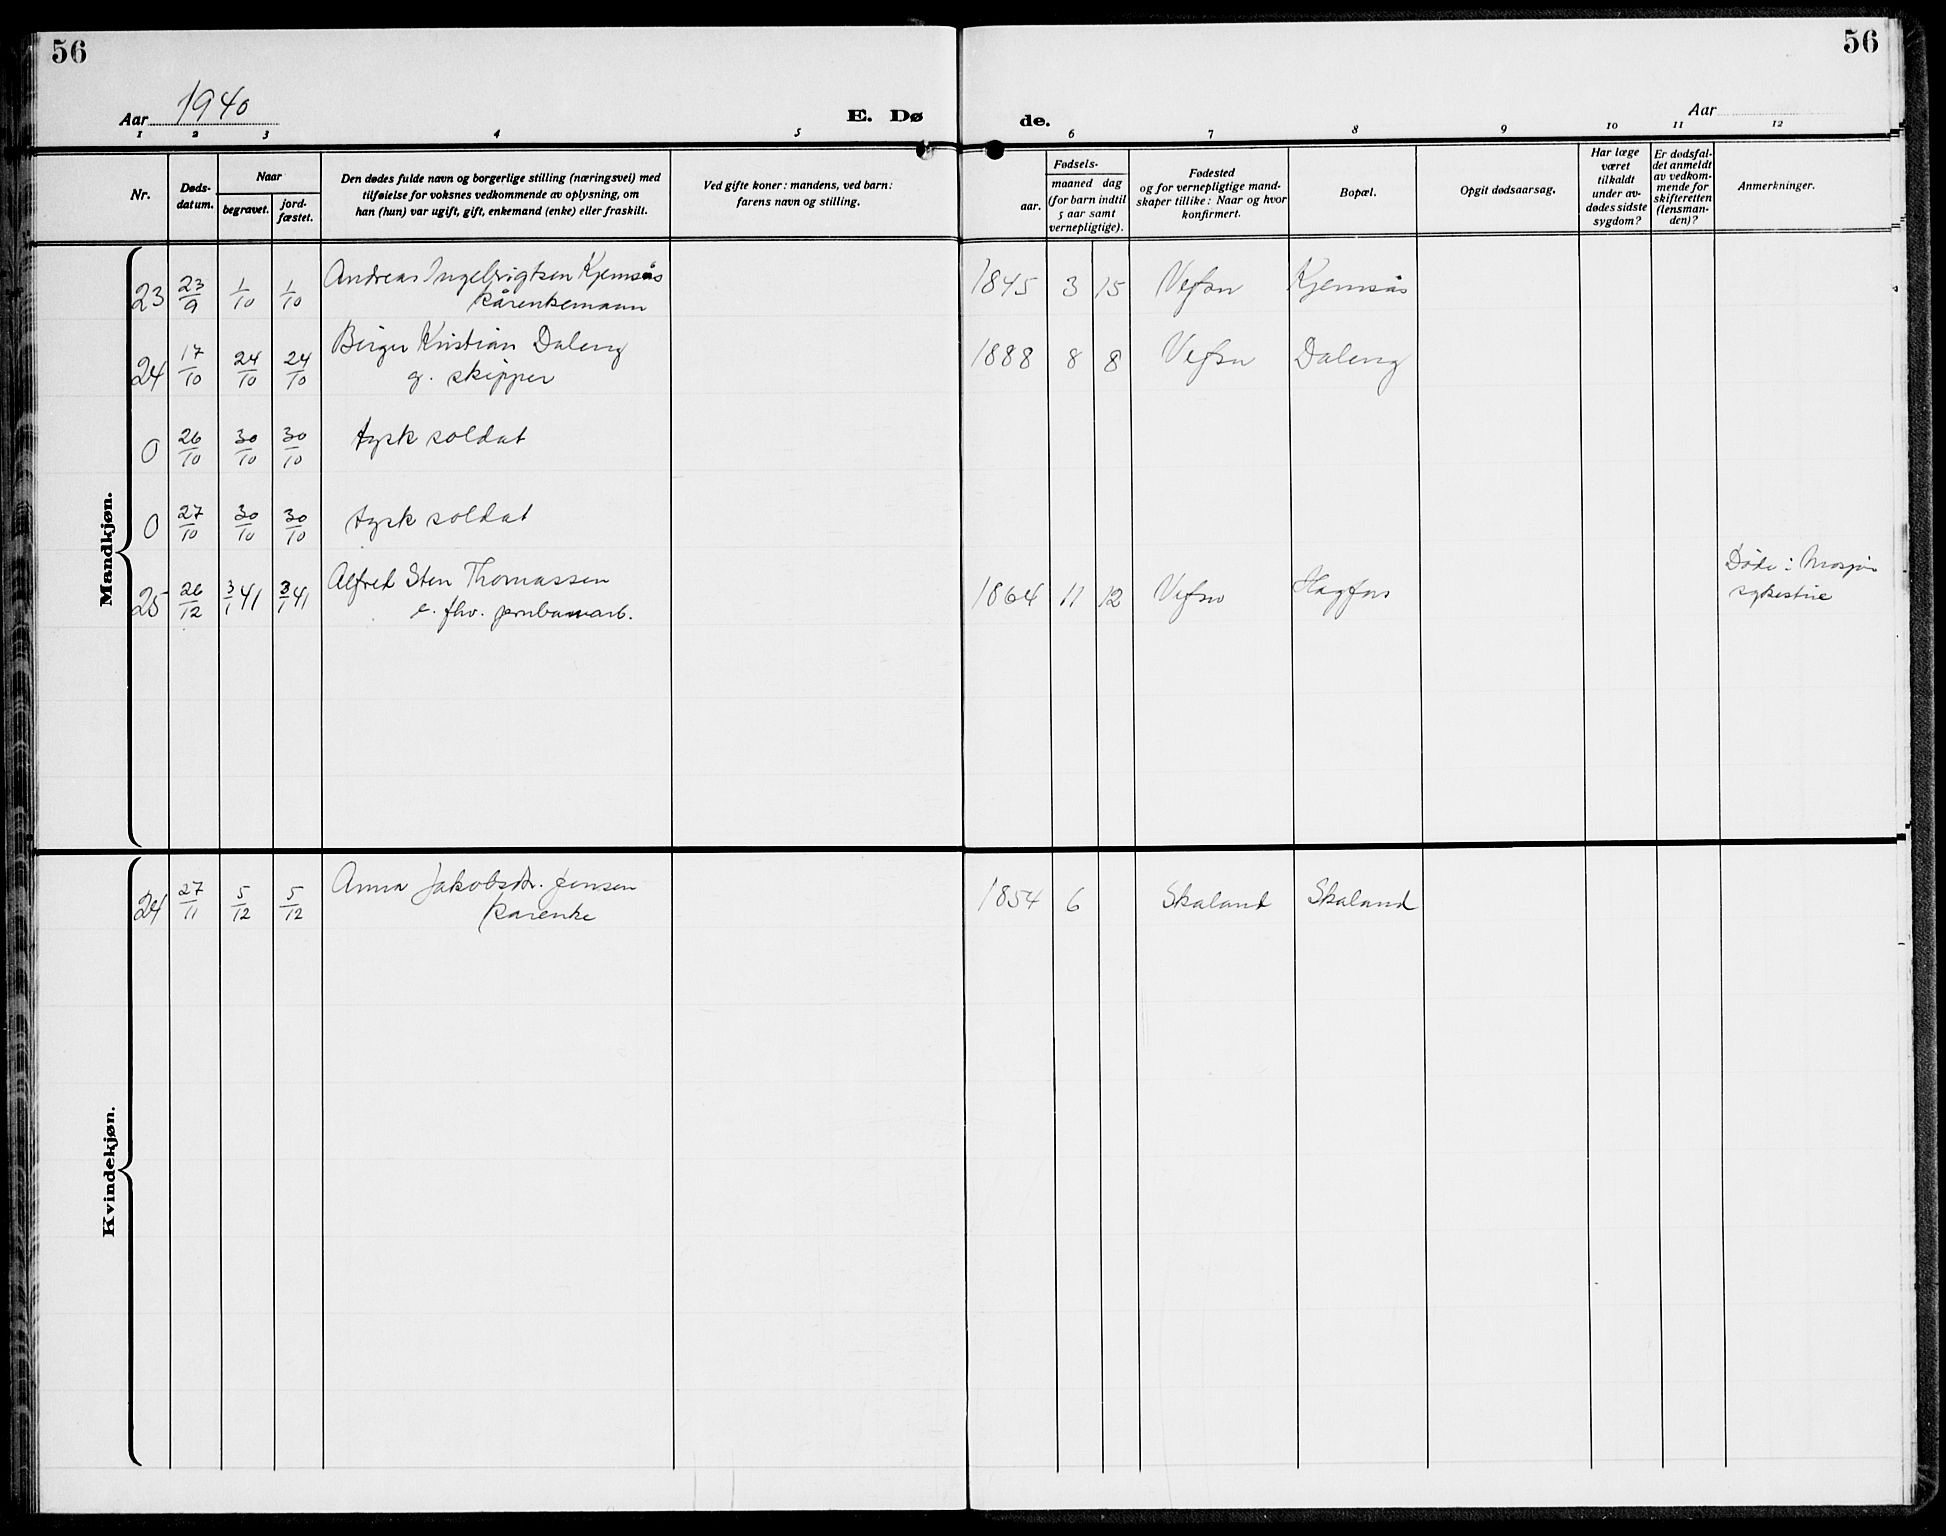 56
56
Aar 1940
E. Dø
de.
Aar
1 2 3 4 5 6 7 8 9 10 11 12
Nr.
Døds-
datum.
Naar
begravet.
jord-
fæstet.
Den dødes fulde navn og borgerlige stilling (næringsvei) med
tilføielse for voksnes vedkommende av oplysning, om
han (hun) var ugift, gift, enkemand (enke) eller fraskilt.
Ved gifte koner: mandens, ved barn:
farens navn og stilling.
Fødsels-
aar.
maaned dag
(for barn indtil
5 aar samt
vernepligtige).
Fødested
og for vernepligtige mand-
skaper tillike: Naar og hvor
konfirmert.
Bopæl.
Opgit dødsaarsag.
Har læge
været
tilkaldt
under av-
dødes sidste
sygdom?
Er dødsfal-
det anmeldt
av vedkom-
mende for
skifteretten
(lensman-
den)?
Anmerkninger.
Mandkjøn.
23 23/9 1/10 1/10 Andreas Ingebrigtsen Kjemsås 1845 3 15 Vefsn Kjemsås
kårenkemann
24 17/10 24/10 24/10 Birger Kristian Daleng 1888 8 8 Vefsn Daleng
g. skipper
0 26/10 30/10 30/10 tysk soldat
0 27/10 30/10 30/10 tysk soldat
25 26/12 3/1 41 3/1 41 Alfred Sten Thomassen 1864 11 12 Vefsn Hagfors Døde i Mosjøen
e. fhv. jernbanearb.
Kvindekjøn.
24 27/11 5/12 5/12 Anna Jakobsdtr. Jensen 1854 6 Skaland Skaland
kårenke